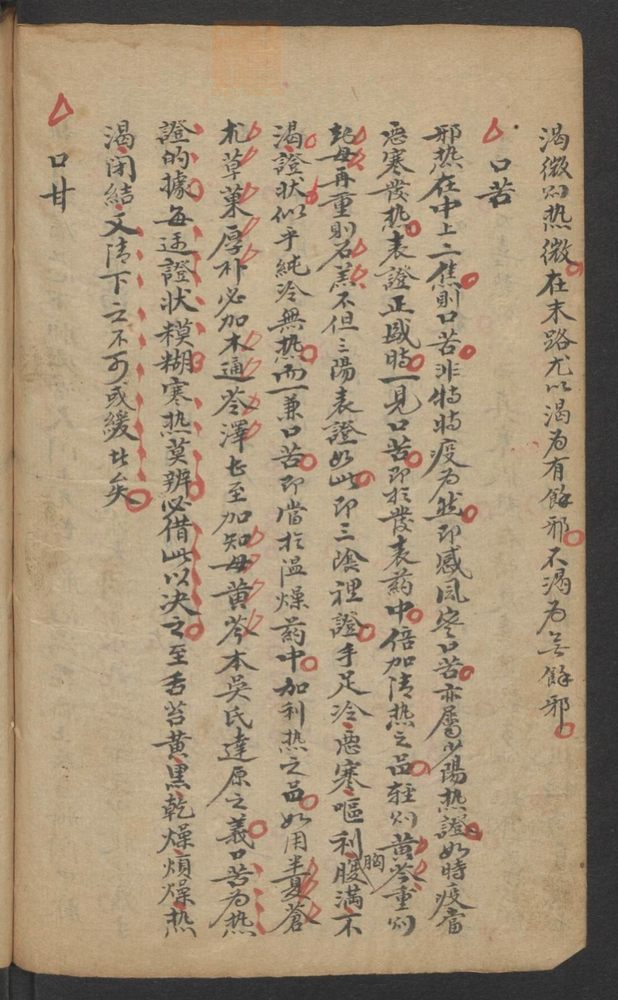 渴微則热微在末路尤以渴為有餘邪不渴為無餘邪
口苦
邪热在中上二焦則口苦非特時疫為然即感風寒口苦亦屬少陽热證如時疫當
惡寒發热表證正盛時一見口苦即於發表葯中倍加清热之品輕則黄芩重則
知母再重則石羔不但三陽表證如此即三陰裡證手足冷惡寒嘔利胸腹滿不
渴證狀似乎純冷無热而一兼口苦即當於温燥葯中加利热之品如用半夏蒼
朮草菓厚朴必加木通芩澤甚至加知母黄芩本吳氏達原之義口苦為热
證的據每逢證狀糢糊寒热莫辨必借此以决之至舌苔黄黑乾燥煩燥热
渴閉結又清下之不可或緩者矣
口甘